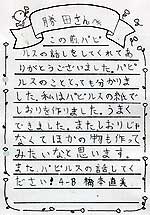 勝田さんへ
この前パピ
ルスの話しをしてくれてあ
りがとうございました。パピ
ルスのこととっても分かりま
した。私はパピルスの紙で
しおりを作りました。うまく
できました。またしおりじゃ
なくてほかの物も作って
みたいなと思います。
また、パピルスの話してく
ださい！4-B 橋本直美